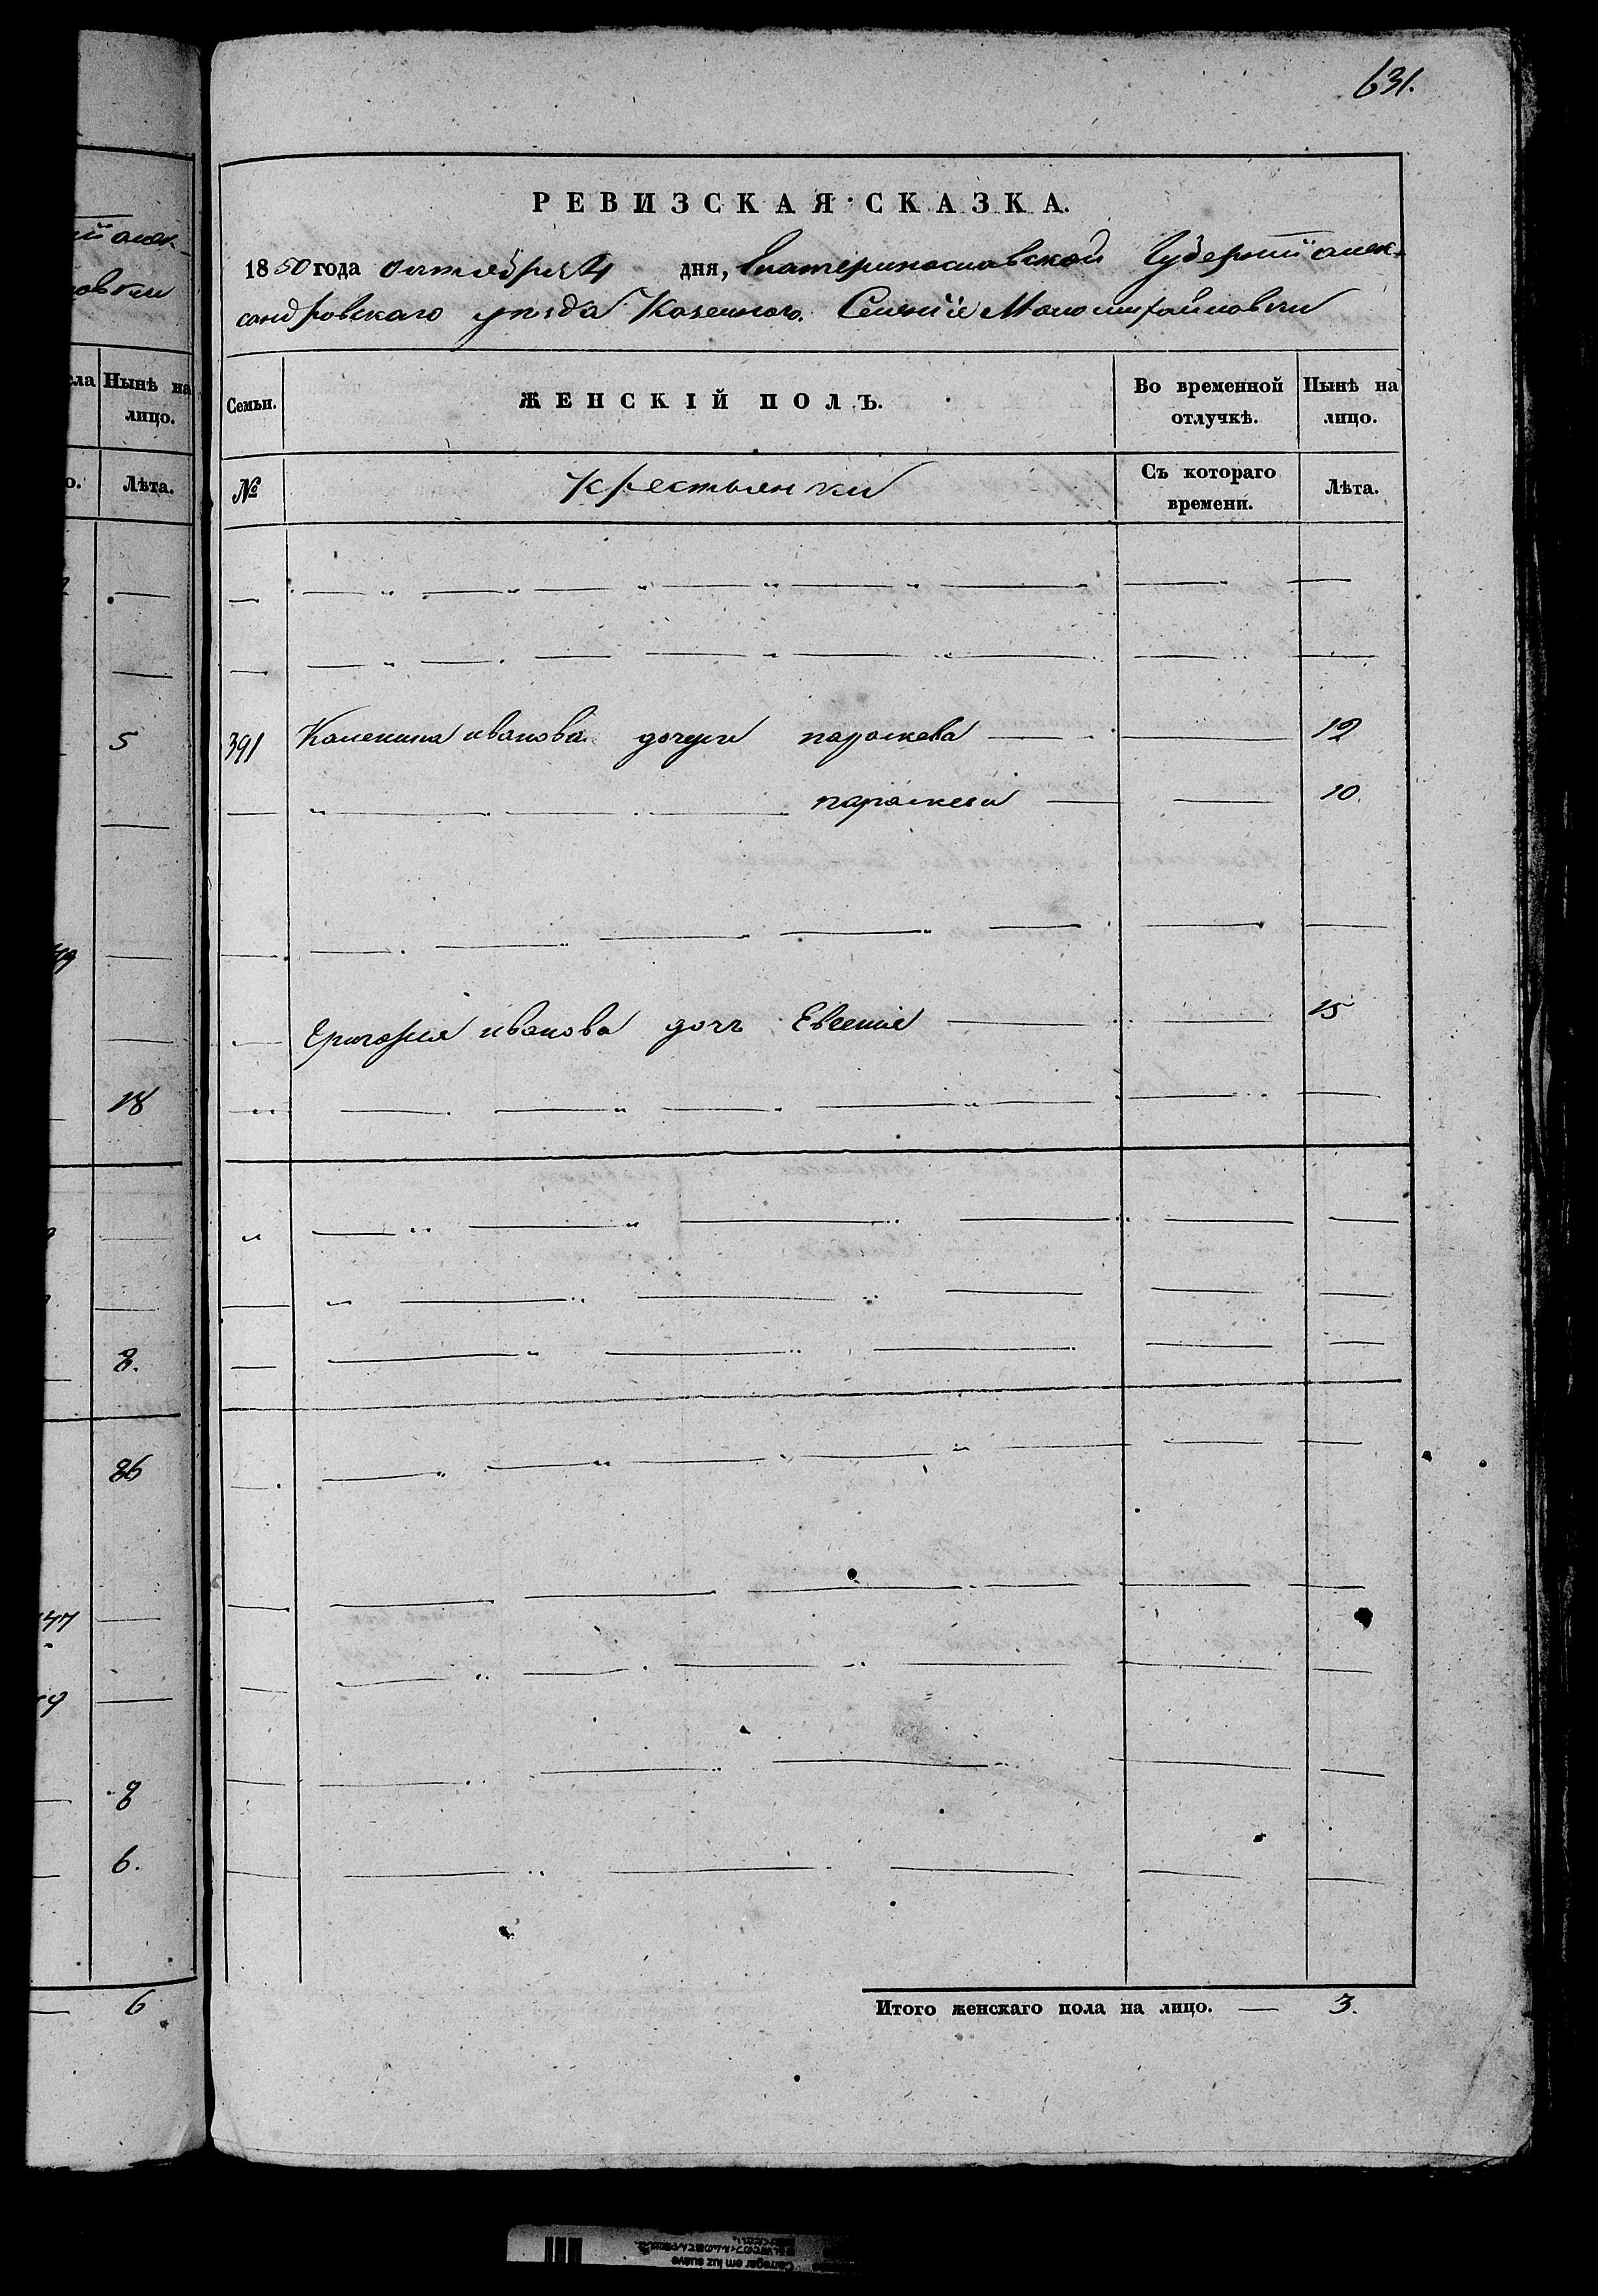 631.
РЕВИЗСКАЯ СКАЗКА.
1850 года октября 4 дня, Екатеринославской Губернии алек-
сандровскаго уезда Казенного Селения Маломихайловки
Семьи.
ЖЕНСКІЙ ПОЛЪ.
Во временной отлучкѣ.
Нынѣ на лицо.
№
крестьянки
Съ котораго времени.
Лѣта.
391 Каленика иванова дочери параскева 12
параскева 10.
Григория иванова дочь Евгения 15
Итого женскаго пола на лицо. — 3.
овки
Нынѣ на
лицо.
Лѣта.
5
18
8.
86
47
8
6.
6